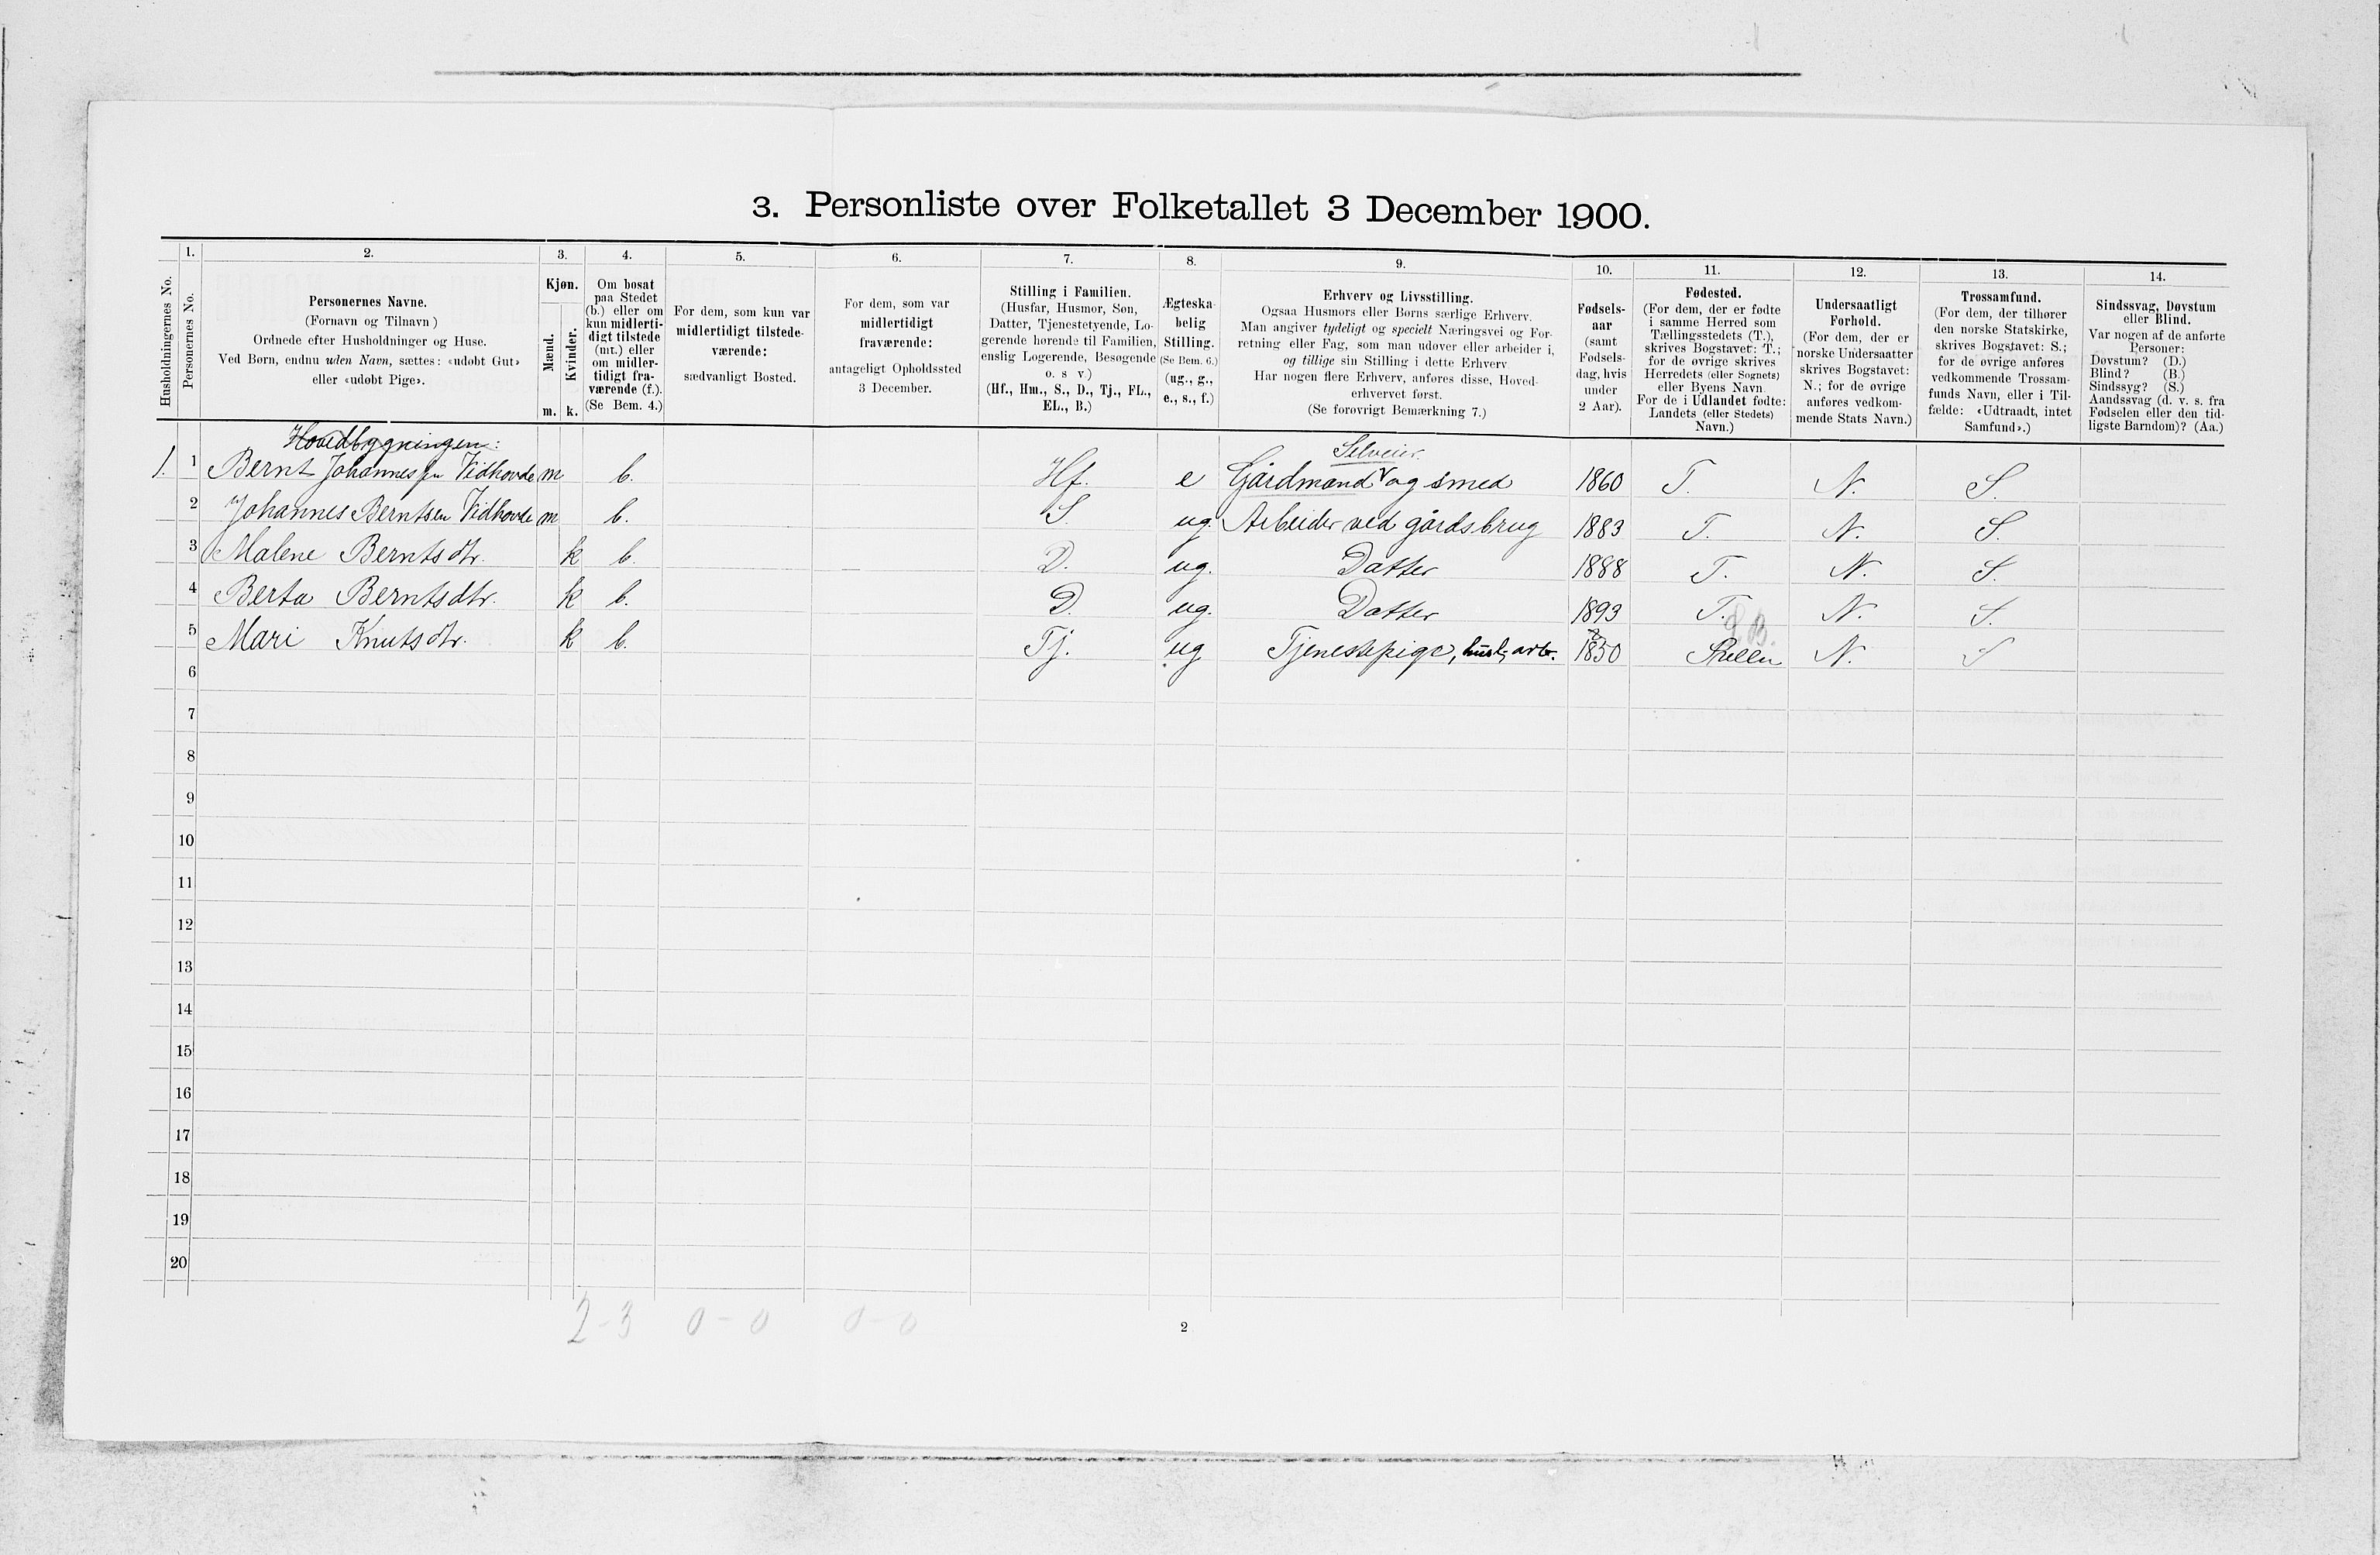 3. Personliste over Folketallet 3 December 1900.
1. 2. 3. 4. 5. 6. 7. 8. 9. 10. 11. 12. 13. 14.
Husholdningernes No.
Personernes No.
Personernes Navne.
(Fornavn og Tilnavn)
Ordnede efter Husholdninger og Huse.
Ved Børn, endnu uden Navn, sættes: «udøbt Gut»
eller «udøbt Pige».
Kjøn.
Mænd.
Kvinder.
m. k.
Om bosat
paa Stedet
(b.) eller om
kun midlerti-
digt tilstede
(mt.) eller
om midler-
tidigt fra-
værende (f.).
(Se Bem. 4.)
For dem, som kun var
midlertidigt tilstede-
værende:
sædvanligt Bosted.
For dem, som var
midlertidigt
fraværende:
antageligt Opholdssted
3 December.
Stilling i Familien.
(Husfar, Husmor, Søn,
Datter, Tjenestetyende, Lo-
gerende hørende til Familien,
enslig Logerende, Besøgende
o. s. v.)
(Hf., Hm., S., D., Tj., FL.,
EL., B.)
Ægteska-
belig
Stilling.
(Se Bem. 6.)
(ug., g.,
e., s., f.)
Erhverv og Livsstilling.
Ogsaa Husmors eller Børns særlige Erhverv.
Man angiver tydeligt og specielt Næringsvei og For-
retning eller Fag, som man udøver eller arbeider i,
og tillige sin Stilling i dette Erhverv
Har nogen flere Erhverv, anføres disse, Hoved-
erhvervet først.
(Se forøvrigt Bemærkning 7.)
Fødsels-
aar
(samt
Fødsels-
dag, hvis
under
2 Aar).
Fødested.
(For dem, der er fødte
i samme Herred som
Tællingsstedets (T.),
skrives Bogstavet: T.;
for de øvrige skrives
Herredets (eller Sognets)
eller Byens Navn
For de i Udlandet fødte:
Landets (eller Stedets)
Navn.)
Undersaatligt
Forhold.
(For dem, der er
norske Undersaatter
skrives Bogstavet:
N.; for de øvrige
anføres vedkom-
mende Stats Navn.)
Trossamfund.
(For dem, der tilhører
den norske Statskirke,
skrives Bogstavet: S.;
for de øvrige anføres
vedkommende Trossam-
funds Navn, eller i Til-
fælde: «Udtraadt, intet
Samfund».)
Sindssvag, Døvstum
eller Blind.
Var nogen af de anførte
Personer:
Døvstum? (D.)
Blind? (B.)
Sindssyg? (S.)
Aandssvag (d. v. s. fra
Fødselen eller den tid-
ligste Barndom)? (Aa.)
Hovedbygningen:
Selveier
1. 1 Bernt Johannessen Vidhovde m b. Hf. e Gårdmand v og smed 1860 T. N. S.
2 Johannes Berntsen Vidhovde m b. S. ug. Arbeider ved gårdsbrug 1883 T. N. S.
3 Malene Berntsdtr. k b. D. ug. Datter 1888 T. N. S.
4 Berta Berntsdtr. k b. D. ug. Datter 1893 T. N. S.
5 Mari Knutsdtr. k b. Tj. ug Tjenestepige, husl. arb. 1850 N. S
6
7
8
9
10
11
12
13
14
15
16
17
18
19
20
2-3 0-0 0-0
2